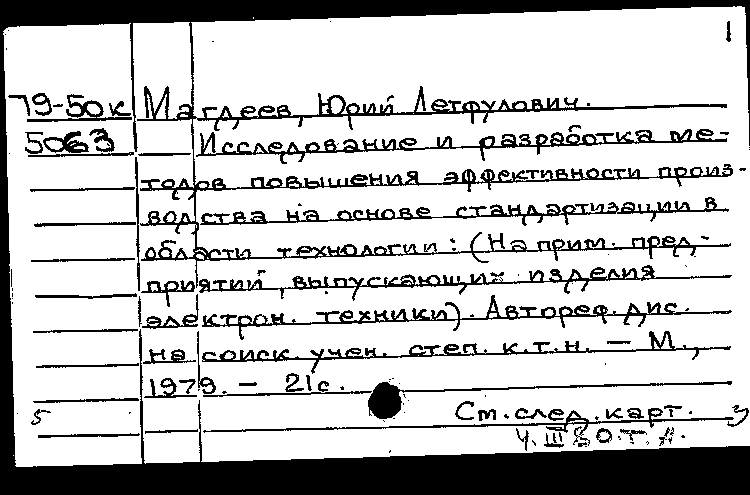 1
79-50к Магдеев, Юрий Летфулович.
5063 Исследование и разработка ме-
тодов повышения эффективности произ-
водства на основе стандартизации в
области технологии: (На прим. пред-
приятий, выпускающих изделия
электрон. техники). Автореф. дис.
на соиск. учен. степ. к.т.н. — М.,
1979. — 21с.
5 См. след. карт.
4.III 80.Т.А.